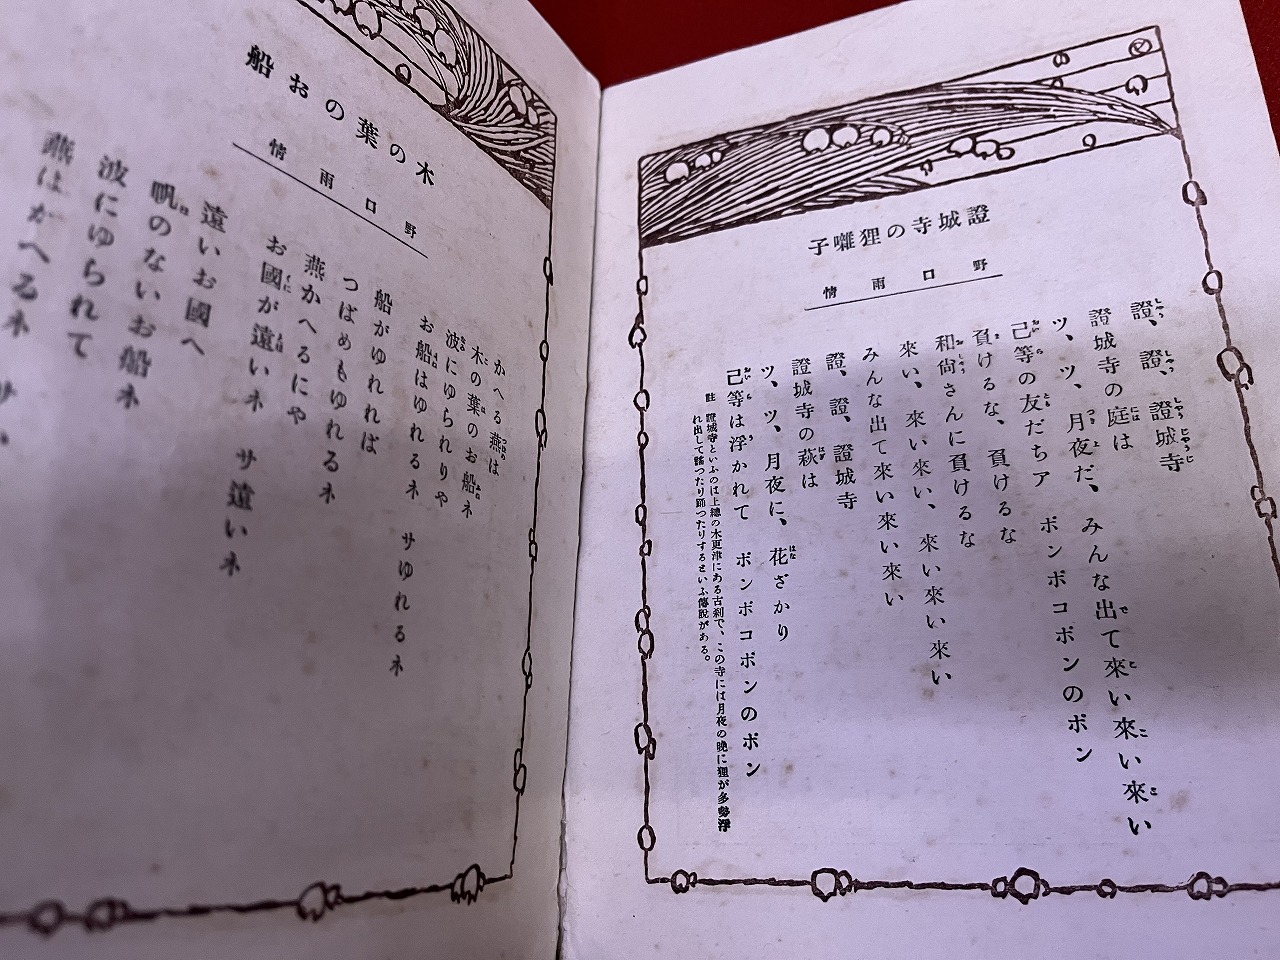 證城寺の狸囃子
野口雨情
證、證、證城寺
證城寺の庭は
ツ、ツ、月夜だ、みんな出て來い來い來い
己等の友だちア ポンポコポンのポン
負けるな、負けるな
和尙さんに負けるな
來い、來い來い、來い來い來い
みんな出て來い來い來い
證、證、證城寺
證城寺の萩は
ツ、ツ、月夜に、花ざかり
己等は浮かれて ポンポコポンのポン
註 證城寺といふのは上總の木更津にある古刹で、この寺には月夜の晩に狸が多勢浮
れ出して謠つたり踊つたりするといふ傳說がある。
木の葉のお船
野口雨情
かへる燕は
木の葉のお船ネ
波にゆられりや
お船はゆれるネ サゆれるネ
船がゆれれば
つばめもゆれるネ
燕かへるにや
お國が遠いネ サ遠いネ
遠いお國へ
帆のないお船ネ
波にゆられて
燕はかへるネ サ、